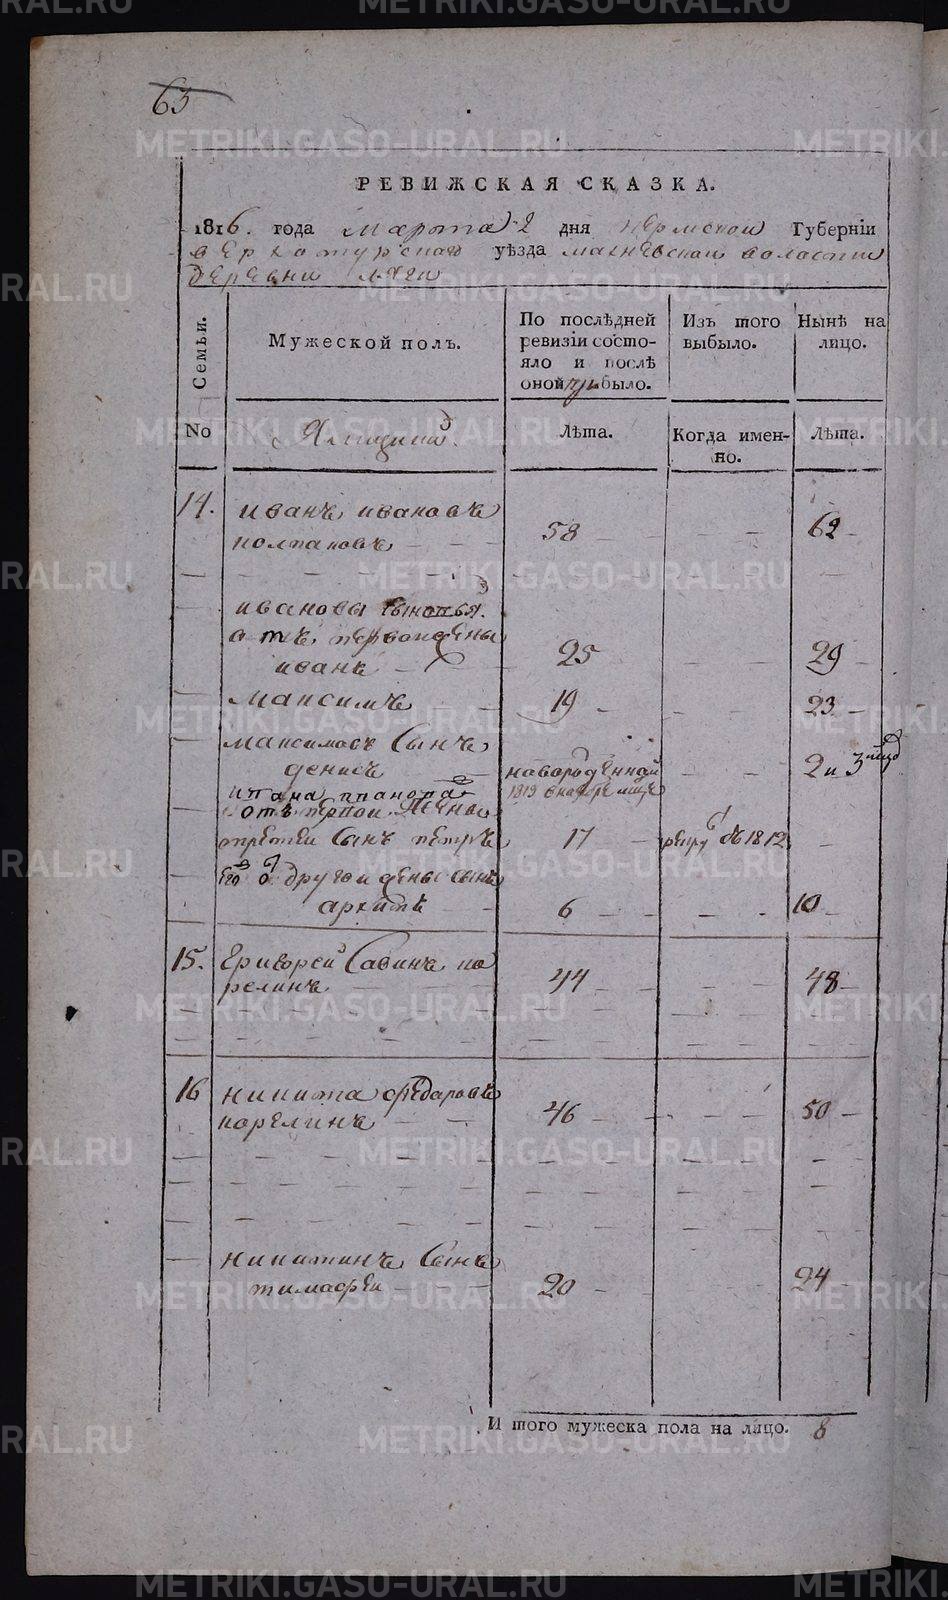 63
РЕВИЖСКАЯ СКАЗКА.
1816. года марта 2 дня пермской Губерніи
верхотурскаго уѣзда махневской воласти
деревни
Семьи.
Мужеской полъ.
По послѣдней ревизіи состояло и послѣ оной прибыло.
Изъ того выбыло.
Нынѣ на лицо.
No
Лѣта.
Когда именно.
Лѣта.
14. иванъ ивановъ
полтановъ 58 62
ивановы сыновья
отъ первой жены
иванъ 25 29
максимъ 19 23
максимовъ сынъ
денисъ наворожденной 2 и 3
1813
ивана иванова
отъ первой жены
третей сынъ петръ 17 1812
его от другой жены сынъ
архипъ 6 10
15. Григорей Савинъ ка
релинъ 44 48
16 никита федаровъ
карелинъ 46 50
никитинъ сынъ
тимафеи 20 24
И того мужеска пола на лицо. 8
METRIKI.GASO-URAL.RU